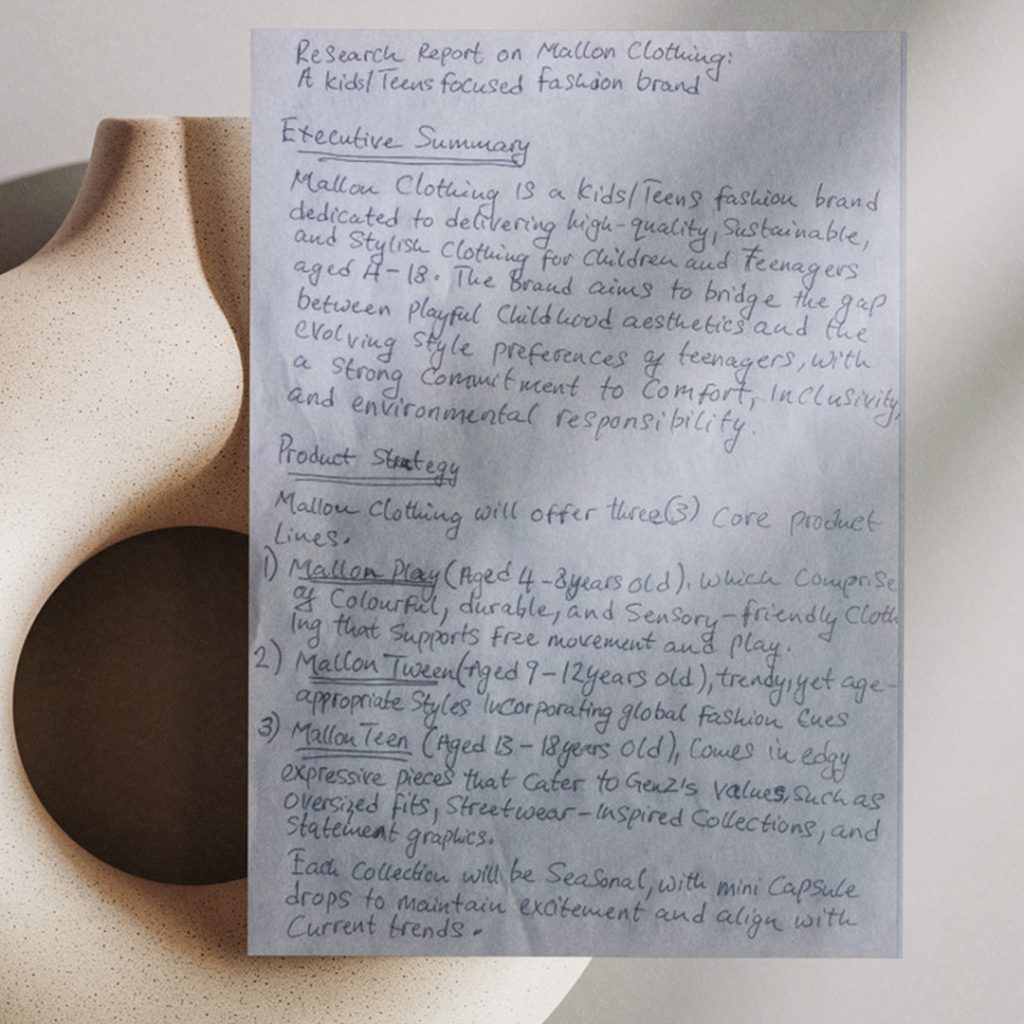 Research Report on Mallon Clothing:
A Kids/Teens focused fashion brand
Executive Summary
Mallon Clothing is a Kids/Teens fashion brand
dedicated to delivering high-quality, Sustainable,
and Stylish Clothing for Children and Teenagers
aged 4-18. The Brand aims to bridge the gap
between Playful Childhood aesthetics and the
evolving Style preferences of teenagers, with
a Strong Commitment to Comfort, Inclusivity,
and environmental responsibility.
Product Strategy
Mallon Clothing will offer three(3) Core product
Lines.
1) Mallon Play (Aged 4-8years old), which Comprise
of Colourful, durable, and Sensory-friendly Cloth
ing that Supports free movement and play.
2) Mallon Tween (Aged 9-12years old), trendy, yet age-
appropriate Styles Incorporating global fashion Cues
3) Mallon Teen (Aged 13-18years old), Comes in edgy
expressive pieces that Cater to GenZ's values, Such as
Oversized fits, Streetwear-Inspired Collections, and
Statement graphics.
Each Collection will be Seasonal, with mini Capsule
drops to maintain excitement and align with
Current trends.